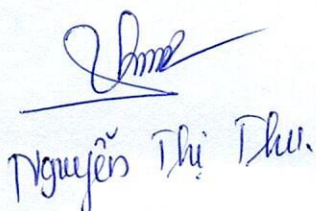 Nguyễn Thị Thu.